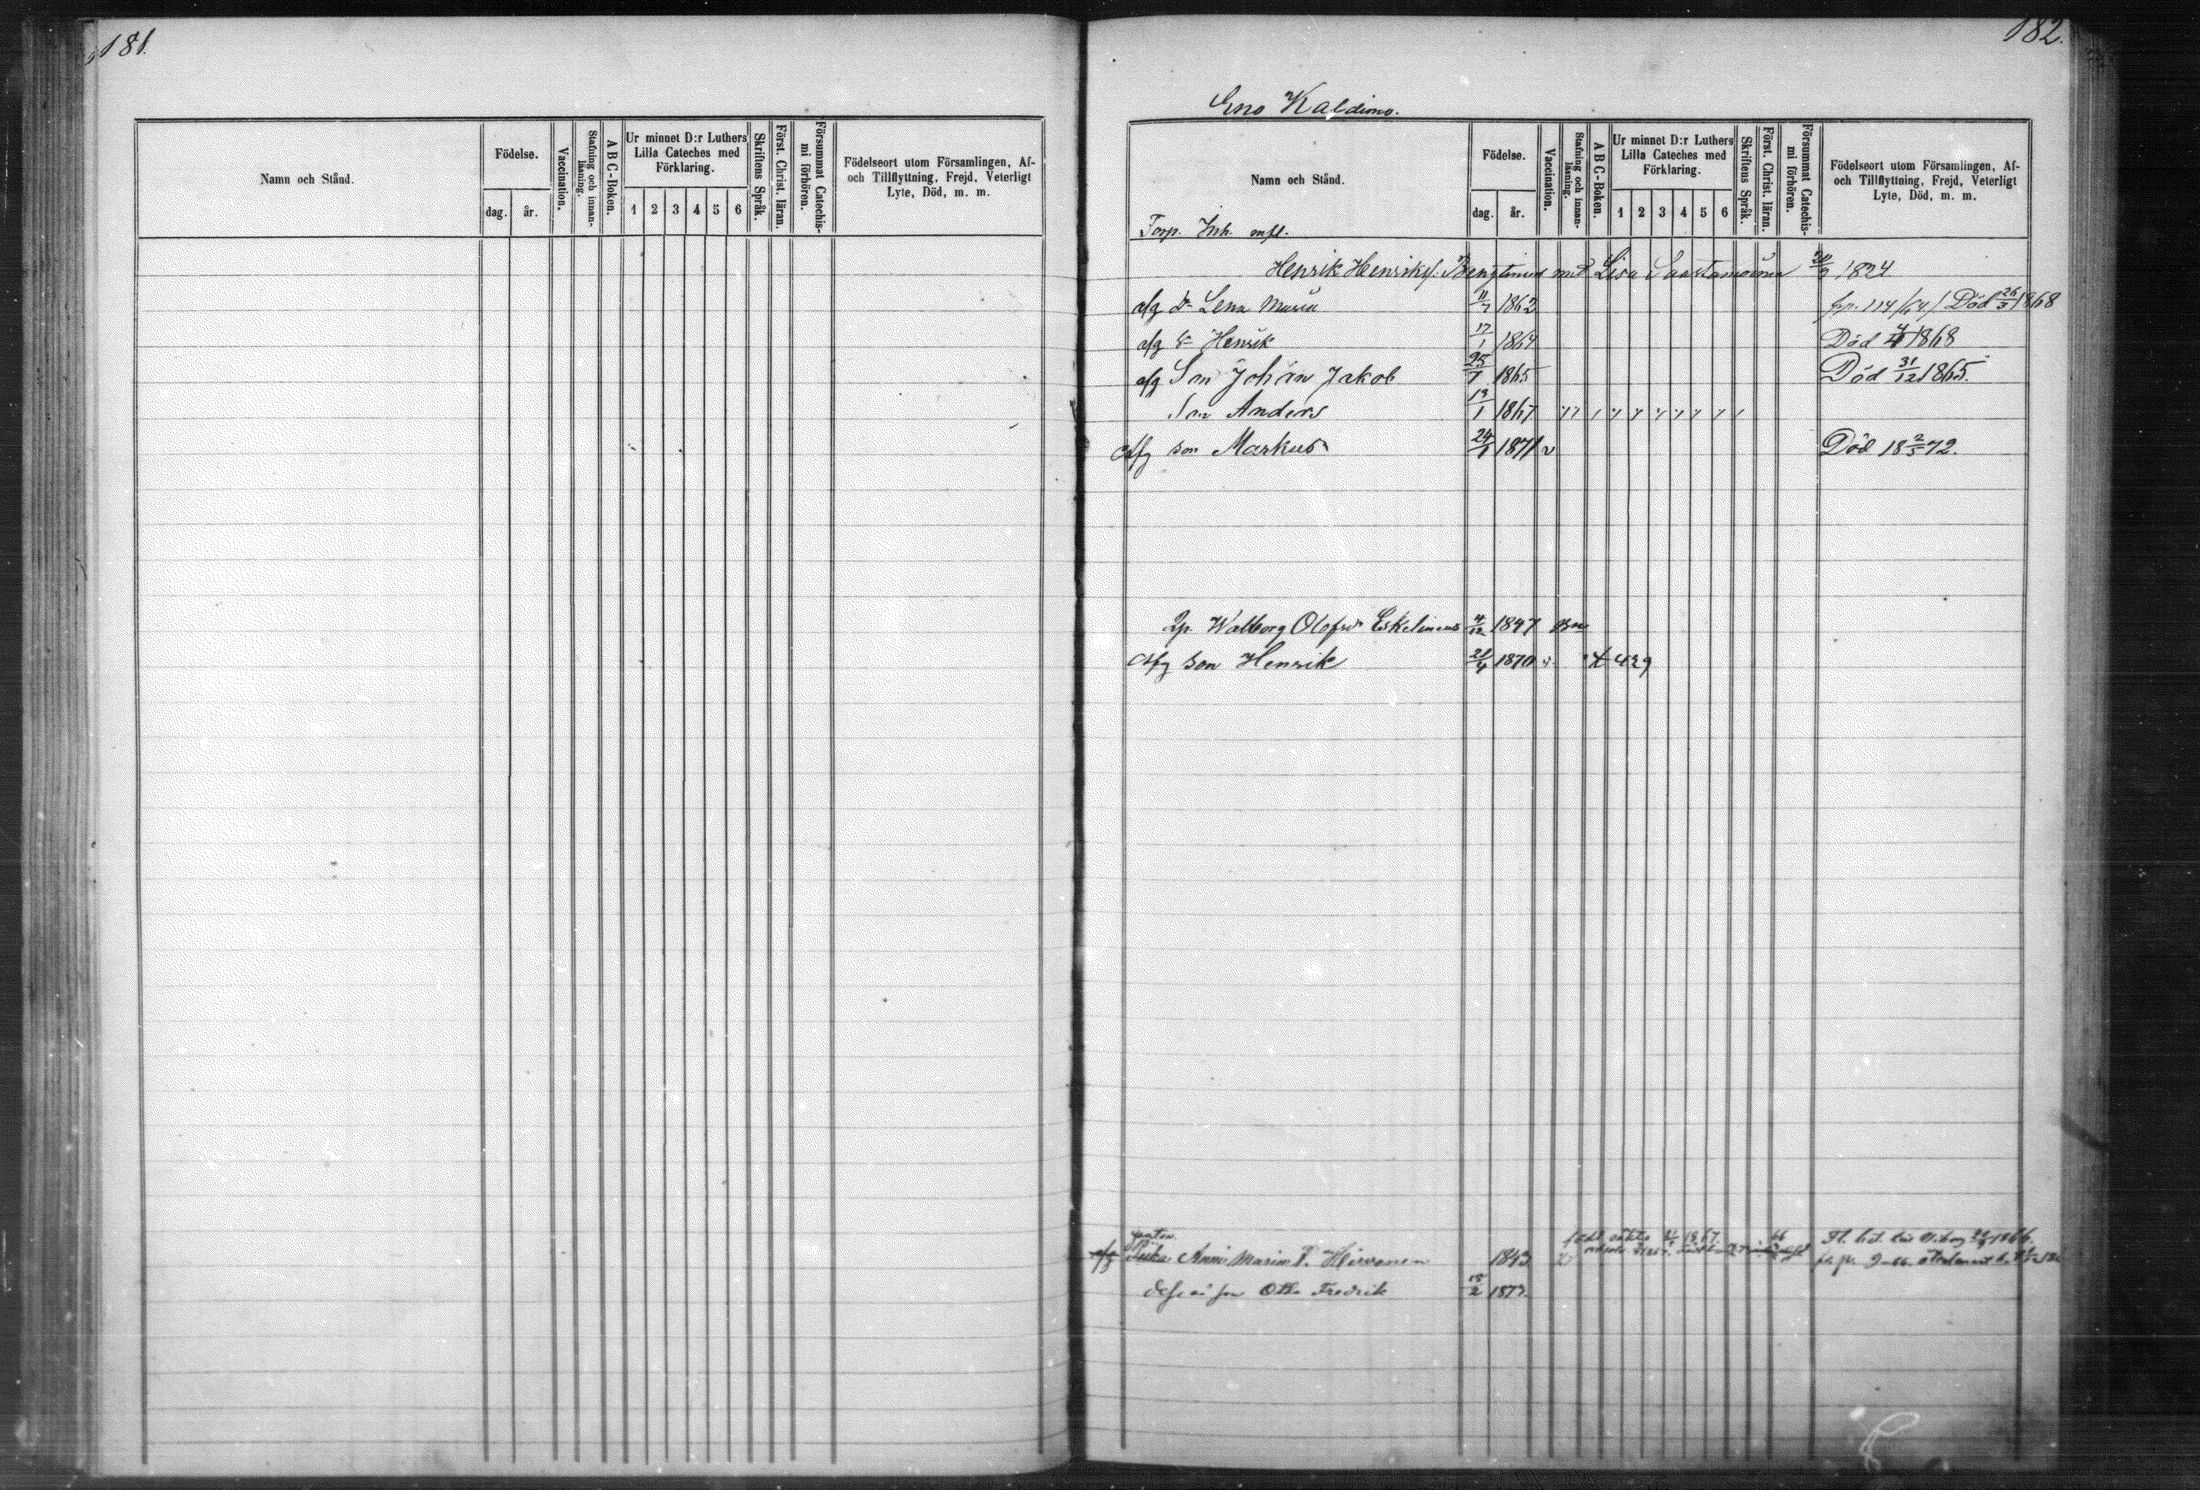 181.
Namn och Stånd.
Födelse.
dag.
år.
Vaccination.
Stafning och innan-
läsning.
ABC-Boken.
Ur minnet D:r Luthers
Lilla Cateches med
Förklaring.
1 2 3 4 5 6
Skriftens Språk.
Först. Christ. läran.
Försummat Catechis-
mi förhören.
Födelseort utom Församlingen, Af-
och Tillflyttning, Frejd, Veterligt
Lyte, Död, m. m.
182.
Eno
Namn och Stånd.
Födelse.
dag.
år.
Vaccination.
Stafning och innan-
läsning.
ABC-Boken.
Ur minnet D:r Luthers
Lilla Cateches med
Förklaring.
1 2 3 4 5 6
Skriftens Språk.
Först. Christ. läran.
Försummat Catechis-
mi förhören.
Födelseort utom Församlingen, Af-
och Tillflyttning, Frejd, Veterligt
Lyte, Död, m. m.
Torp. Inh.
Henrik Lisa Saastamoinen 1824
afg Lena Maria 11/7 1862 Död 26/3 1868
afg Henrik 17/1 1864 Död 1868
afg Son Johan Jakob 25/7 1865 Död 31/12 1865.
Son Anders 1867
afg son Markus 24/1 1871 v Död 18 2/5 72.
Walborg Olofsdr Eskelinen 4/12 1847
afg son Henrik 21/4 1870 429
afg Piika Anna Maria P. Hirvonen 1843
son Otto Fredrik 15/2 1873.